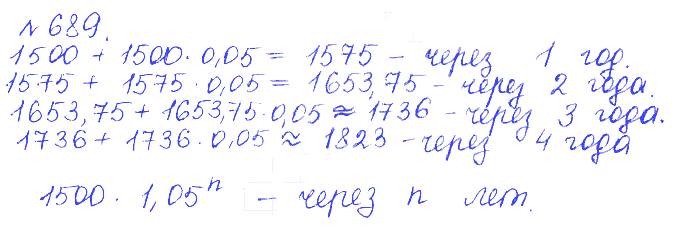 №689.
1500 + 1500·0,05 = 1575 – через 1 год.
1575 + 1575·0,05 = 1653,75 – через 2 года.
1653,75 + 1653,75·0,05 ≈ 1736 – через 3 года.
1736 + 1736·0,05 ≈ 1823 – через 4 года
1500·1,05ⁿ – через n лет.